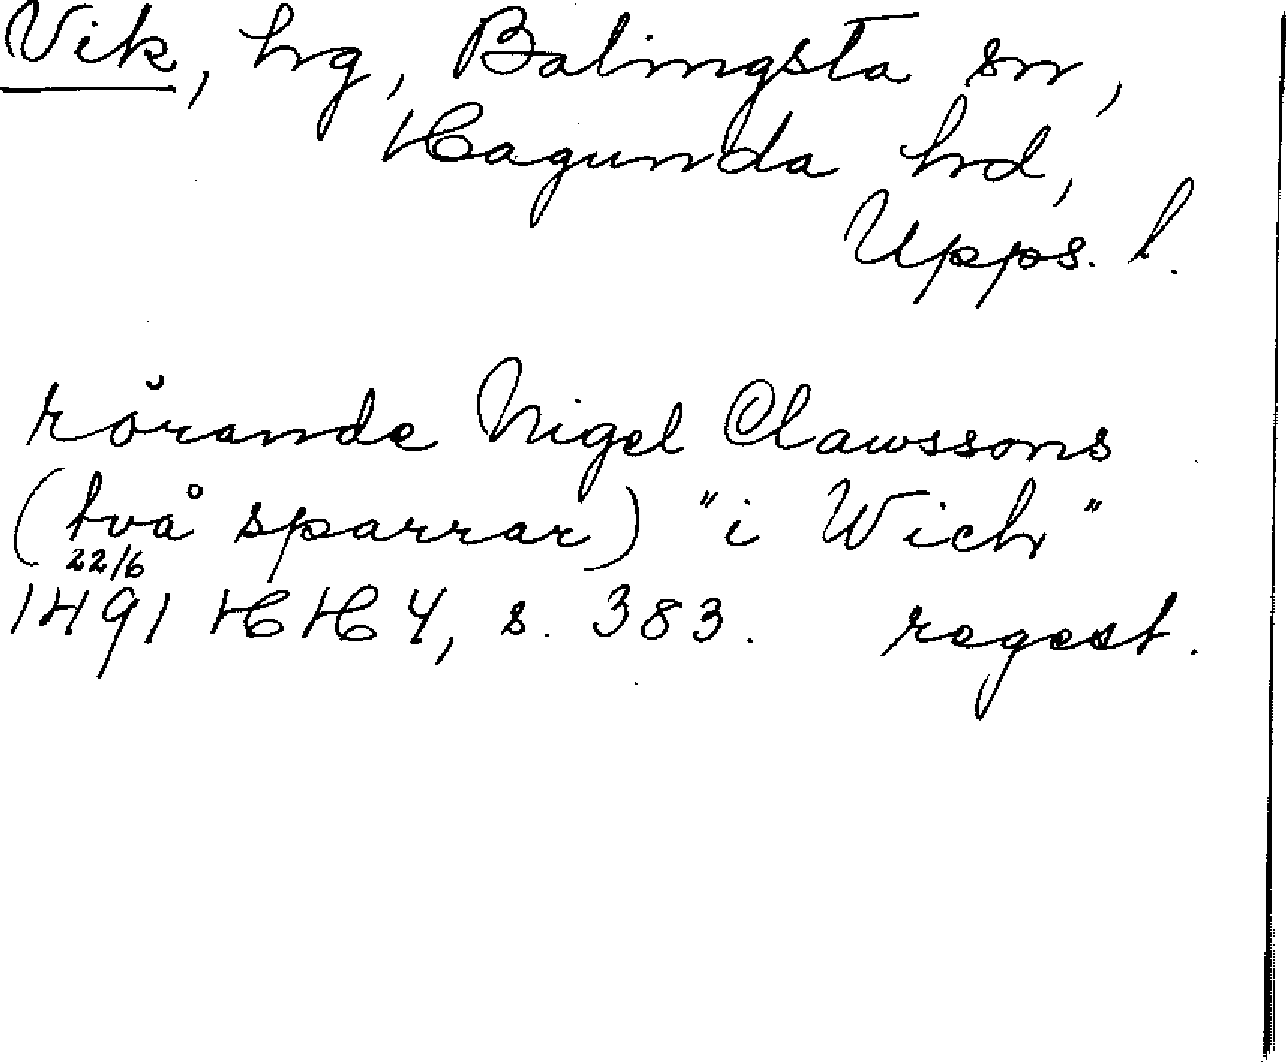 Vik, hg, Balingsta sn,
Hagunda hd,
Upps. l.
rörande Nigel Clawssons
(två sparrar) "i Wich"
22/6
1491 HH 4, s. 383. regest.